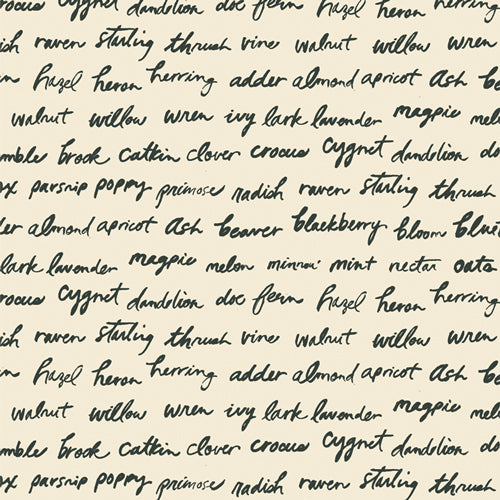 crocus cygnet dandelion doe fern hazel heron herring
radish raven starling thrush vine walnut willow wren
hazel heron herring adder almond apricot ash
walnut willow wren ivy lark lavender magpie melon
bramble brook catkin clover crocus cygnet dandelion doe
parsnip poppy primrose radish raven starling thrush
adder almond apricot ash beaver blackberry bloom blue
lark lavender magpie melon minnow mint nectar oats
crocus cygnet dandelion doe fern hazel heron herring
radish raven starling thrush vine walnut willow wren
hazel heron herring adder almond apricot ash
walnut willow wren ivy lark lavender magpie melon
bramble brook catkin clover crocus cygnet dandelion doe
parsnip poppy primrose radish raven starling thrush